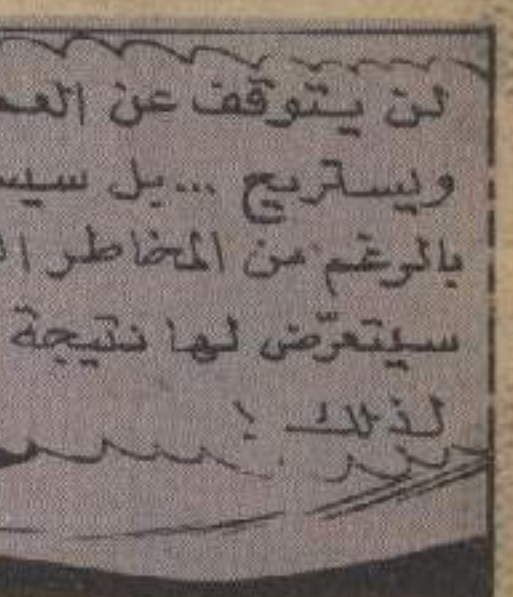 لن يتوقف عن
ويستريح ... بل
بالرغم من المخاطر
سيتعرّض لها نتيجة
لذلك !